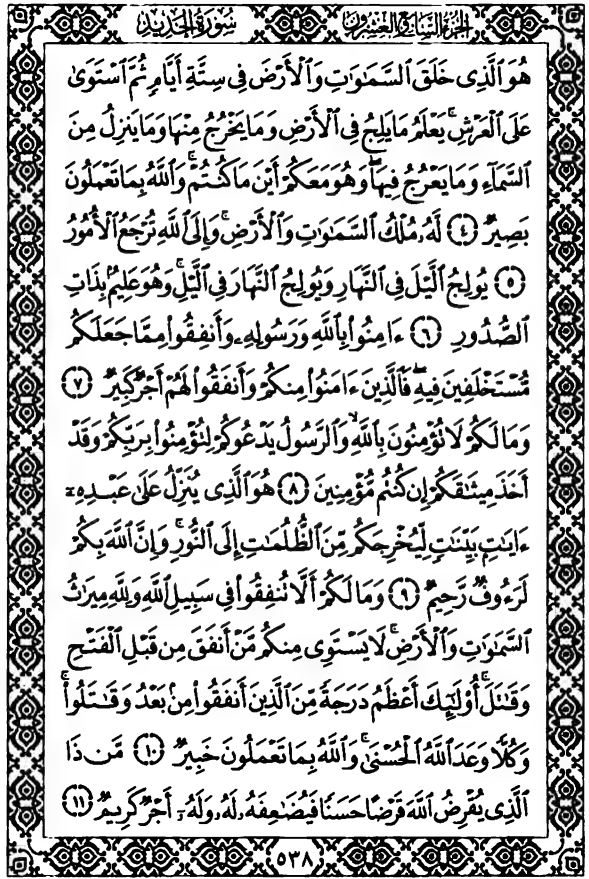 سُورَةُ الحَدِيدِ الجُزءُ السَّابِعُ وَالعِشْرُونَ
هُوَ ٱلَّذِى خَلَقَ ٱلسَّمَٰوَٰتِ وَٱلْأَرْضَ فِى سِتَّةِ أَيَّامٍ ثُمَّ ٱسْتَوَىٰ
عَلَى ٱلْعَرْشِ ۚ يَعْلَمُ مَا يَلِجُ فِى ٱلْأَرْضِ وَمَا يَخْرُجُ مِنْهَا وَمَا يَنزِلُ مِنَ
ٱلسَّمَآءِ وَمَا يَعْرُجُ فِيهَا ۖ وَهُوَ مَعَكُمْ أَيْنَ مَا كُنتُمْ ۚ وَٱللَّهُ بِمَا تَعْمَلُونَ
بَصِيرٌ ﴿٤﴾ لَّهُۥ مُلْكُ ٱلسَّمَٰوَٰتِ وَٱلْأَرْضِ ۚ وَإِلَى ٱللَّهِ تُرْجَعُ ٱلْأُمُورُ
﴿٥﴾ يُولِجُ ٱلَّيْلَ فِى ٱلنَّهَارِ وَيُولِجُ ٱلنَّهَارَ فِى ٱلَّيْلِ ۚ وَهُوَ عَلِيمٌۢ بِذَاتِ
ٱلصُّدُورِ ﴿٦﴾ ءَامِنُوا۟ بِٱللَّهِ وَرَسُولِهِۦ وَأَنفِقُوا۟ مِمَّا جَعَلَكُم
مُّسْتَخْلَفِينَ فِيهِ ۖ فَٱلَّذِينَ ءَامَنُوا۟ مِنكُمْ وَأَنفَقُوا۟ لَهُمْ أَجْرٌ كَبِيرٌ ﴿٧﴾
وَمَا لَكُمْ لَا تُؤْمِنُونَ بِٱللَّهِ ۙ وَٱلرَّسُولُ يَدْعُوكُمْ لِتُؤْمِنُوا۟ بِرَبِّكُمْ وَقَدْ
أَخَذَ مِيثَٰقَكُمْ إِن كُنتُم مُّؤْمِنِينَ ﴿٨﴾ هُوَ ٱلَّذِى يُنَزِّلُ عَلَىٰ عَبْدِهِۦٓ
ءَايَٰتٍۭ بَيِّنَٰتٍ لِّيُخْرِجَكُم مِّنَ ٱلظُّلُمَٰتِ إِلَى ٱلنُّورِ ۚ وَإِنَّ ٱللَّهَ بِكُمْ
لَرَءُوفٌ رَّحِيمٌ ﴿٩﴾ وَمَا لَكُمْ أَلَّا تُنفِقُوا۟ فِى سَبِيلِ ٱللَّهِ وَلِلَّهِ مِيرَٰثُ
ٱلسَّمَٰوَٰتِ وَٱلْأَرْضِ ۚ لَا يَسْتَوِى مِنكُم مَّنْ أَنفَقَ مِن قَبْلِ ٱلْفَتْحِ
وَقَٰتَلَ ۚ أُو۟لَٰٓئِكَ أَعْظَمُ دَرَجَةً مِّنَ ٱلَّذِينَ أَنفَقُوا۟ مِنۢ بَعْدُ وَقَٰتَلُوا۟ ۚ
وَكُلًّا وَعَدَ ٱللَّهُ ٱلْحُسْنَىٰ ۚ وَٱللَّهُ بِمَا تَعْمَلُونَ خَبِيرٌ ﴿١٠﴾ مَّن ذَا
ٱلَّذِى يُقْرِضُ ٱللَّهَ قَرْضًا حَسَنًا فَيُضَٰعِفَهُۥ لَهُۥ وَلَهُۥٓ أَجْرٌ كَرِيمٌ ﴿١١﴾
٥٣٨